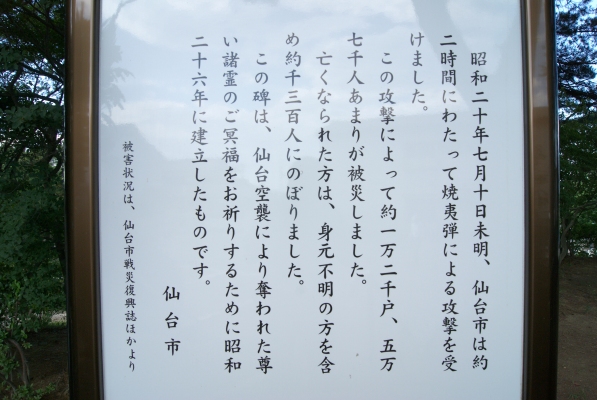 昭和二十年七月十日未明、仙台市は約
二時間にわたって焼夷弾による攻撃を受
けました。
この攻撃によって約一万二千戸、五万
七千人あまりが被災しました。
亡くなられた方は、身元不明の方を含
め約千三百人にのぼりました。
この碑は、仙台空襲により奪われた尊
い諸霊のご冥福をお祈りするために昭和
二十六年に建立したものです。
仙台市
被害状況は、仙台市戦災復興誌ほかより